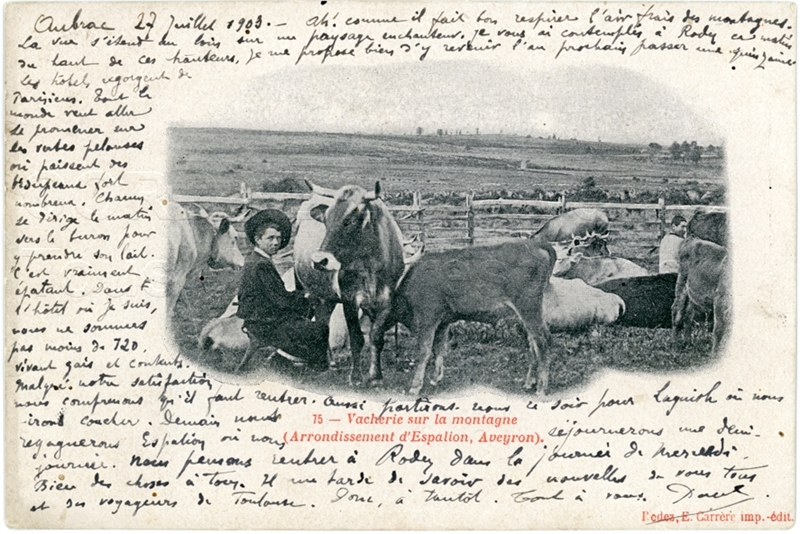 Aubrac 27 Juillet 1903. — Ah! comme il fait bon respirer l'air frais des montagnes.
La vue s'étend au loin sur un paysage enchanteur. Je vous ai contemplés, à Rodez ce matin
du haut de ces hauteurs, je me propose bien d'y revenir l'an prochain passer une quinzaine
Les hôtels regorgent de
Parisiens. Tout le
monde veut aller
se promener sur
les vertes pelouses
où paissent des
troupeaux fort
nombreux. Chacun
se dirige le matin
vers le buron pour
y prendre son lait.
C'est vraiment
épatant. Dans
l'hôtel où je suis,
nous ne sommes
pas moins de 120
vivant gais et contents.
Malgré notre satisfaction
nous comprenons qu'il faut rentrer. Aussi partirons-nous ce soir pour Laguiole où nous
75 — Vacherie sur la montagne
(Arrondissement d'Espalion, Aveyron).
irons coucher. Demain nous
regagnerons Espalion où nous séjournerons une demi-
journée. Nous pensons rentrer à Rodez dans la journée de mercredi.
Bien des choses à tous. Il me tarde de savoir des nouvelles de vous tous
et des voyageurs de Toulouse. Donc, à tantôt. Tout à vous.
Rodez, E. Carrère imp.-édit.